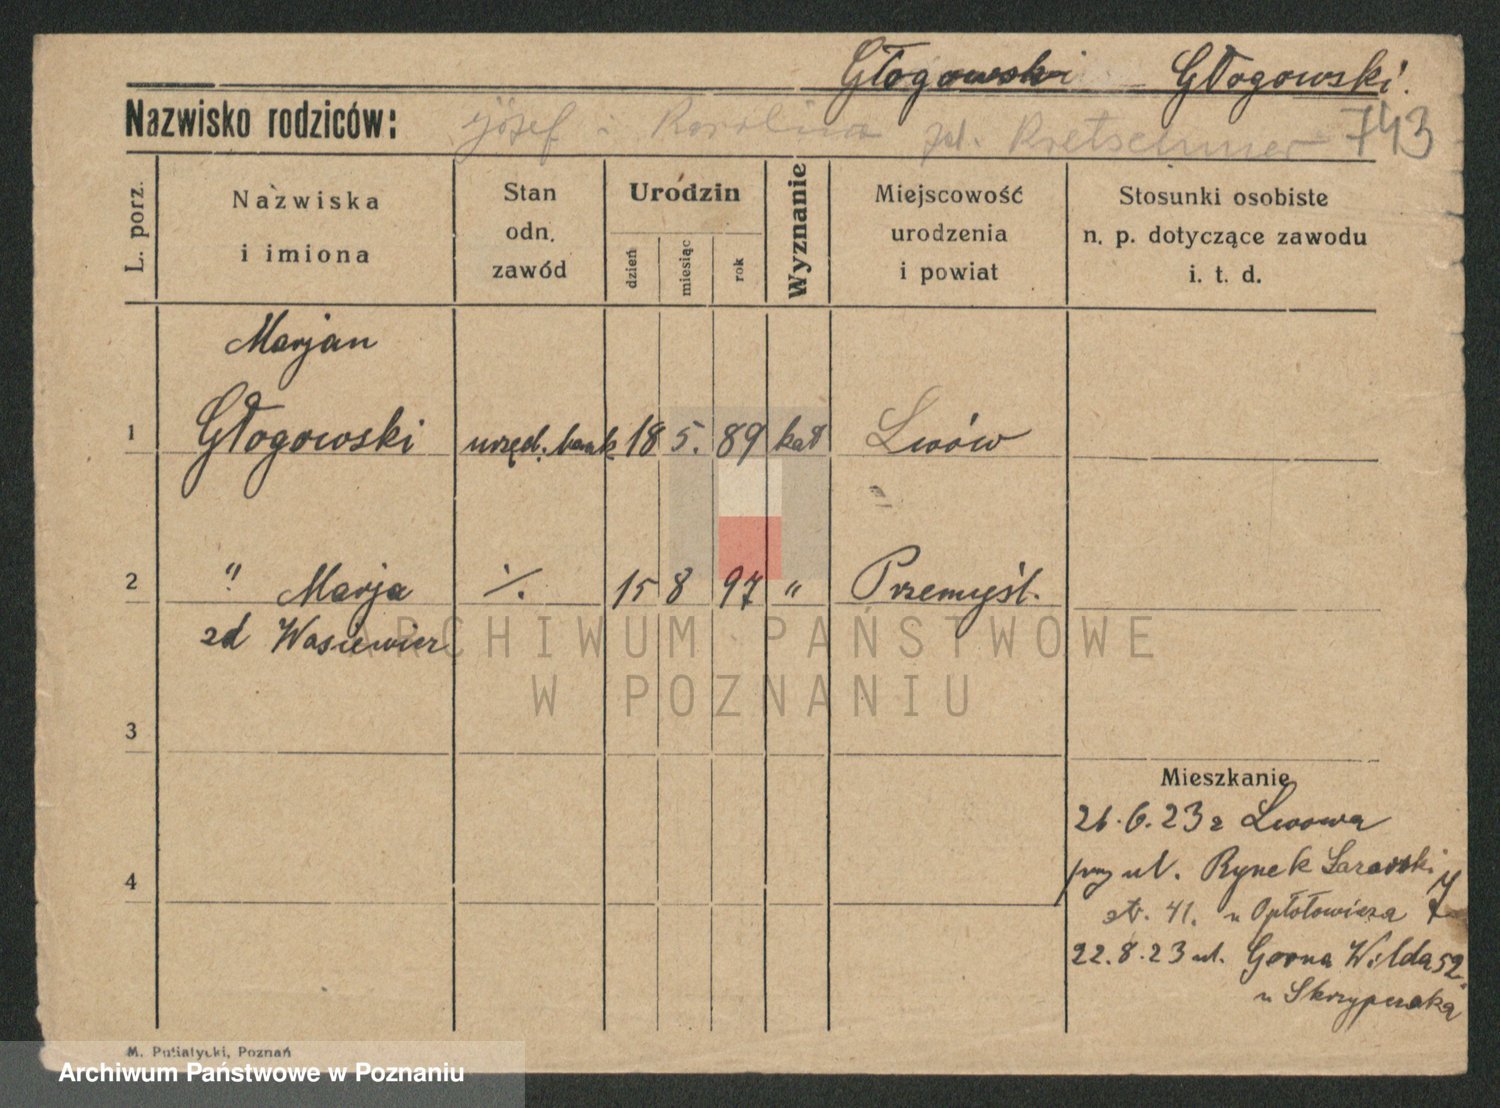 Głogowski Głogowski.
Nazwisko rodziców: Józef i Karolina zd. Kretschmer 743
L. porz.
Nazwiska
i imiona
Stan
odn.
zawód
Urodzin
dzień
miesiąc
rok
Wyznanie
Miejscowość
urodzenia
i powiat
Stosunki osobiste
n. p. dotyczące zawodu
i. t. d.
Marjan
1 Głogowski urzęd. bank 18 5. 89 kat Lwów
2 " Marja ·/. 15 8 97 " Przemyśl.
zd Wasiewicz
ARCHIWUM PAŃSTWOWE
W POZNANIU
3
Mieszkanie
26.6.23 z Lwowa
4
przy ul. Rynek Łazarski 7
str. 41. u Opłotowicza
22.8.23 ul. Gorna Wilda 52
u Skrzypczaka
M. Putiatycki, Poznań
Archiwum Państwowe w Poznaniu